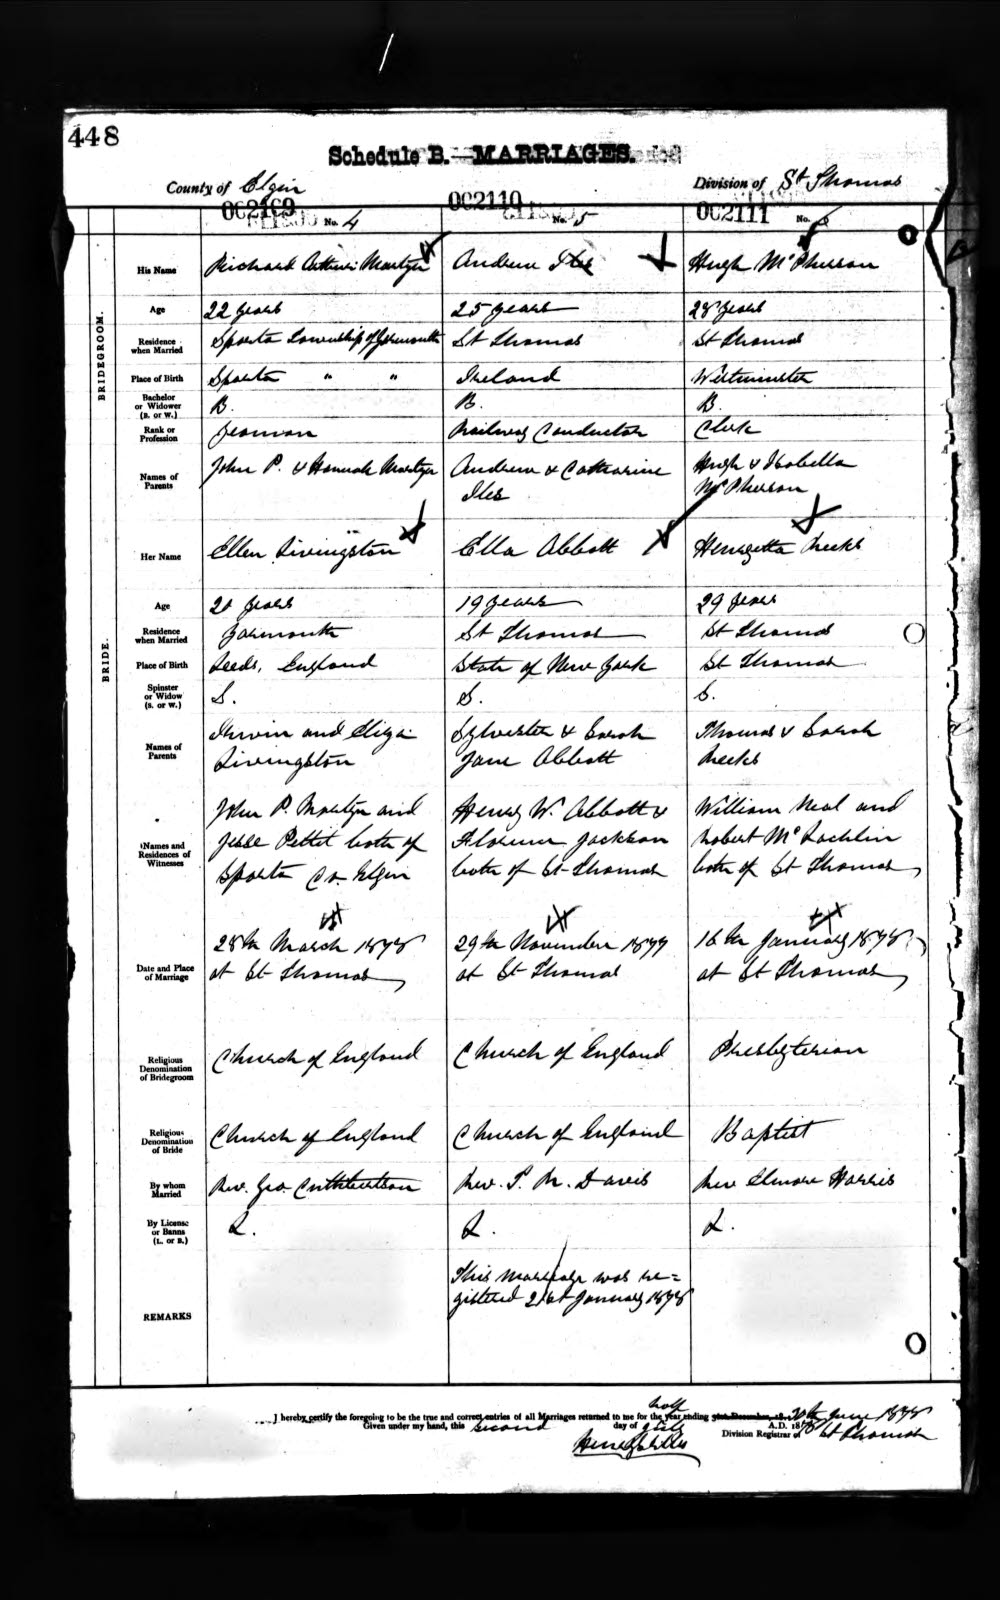 448
Schedule B.—MARRIAGES.
County of Elgin
Division of St Thomas
002109 No. 4
002110 No. 5
002111 No. 6
BRIDEGROOM.
His Name
Richard Arthur Martyn
Andrew Iles
Hugh McPherson
Age
22 years
25 years
28 years
Residence when Married
Sparta Township of Yarmouth
St Thomas
St Thomas
Place of Birth
Sparta " "
Ireland
Westminster
Bachelor or Widower (B. or W.)
B.
B.
B.
Rank or Profession
Yeoman
Railway Conductor
Clerk
Names of Parents
John P. & Hannah Martyn
Andrew & Catharine
Iles
Hugh & Isabella
McPherson
BRIDE.
Her Name
Ellen Livingston
Ella Abbott
Henrietta Meeks
Age
20 years
19 years
29 years
Residence when Married
Yarmouth
St Thomas
St Thomas
Place of Birth
Leeds, England
State of New York
St Thomas
Spinster or Widow (S. or W.)
S.
S.
S.
Names of Parents
Irwin and Eliza
Livingston
Sylvester & Sarah
Jane Abbott
Thomas & Sarah
Meeks
Names and Residences of Witnesses
John P. Martyn and
Jesse Pettit both of
Sparta Co. Elgin
Henry W. Abbott &
Florence Jackson
both of St Thomas
William Neal and
Robert McLachlin
both of St Thomas
Date and Place of Marriage
28th March 1878
at St Thomas
29th November 1877
at St Thomas
16th January 1878
at St Thomas
Religious Denomination of Bridegroom
Church of England
Church of England
Presbyterian
Religious Denomination of Bride
Church of England
Church of England
Baptist
By whom Married
Rev. Geo. Cuthbertson
Rev. T. M. Davis
Rev Elmore Harris
By License or Banns (L. or B.)
L.
L.
L.
REMARKS
This marriage was re=
gistered 21st January 1878
I hereby certify the foregoing to be the true and correct entries of all Marriages returned to me for the half year ending 31st December, 18 30th June 1878
Given under my hand, this second day of July A.D. 1878
Division Registrar of St Thomas